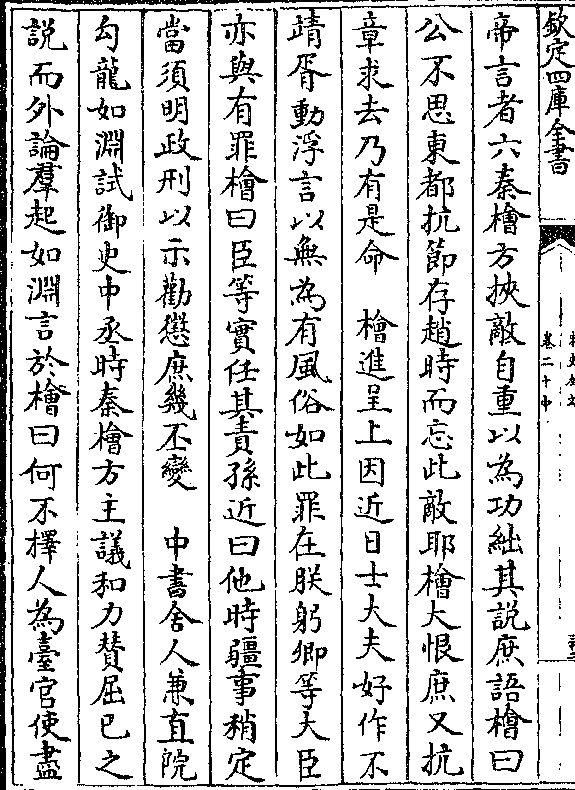 欽定四庫全書
卷二十中
帝言者六秦檜方挾敵自重以為功絀其說庶語檜曰
公不思東都抗節存趙時而忘此敵耶檜大恨庶又抗
章求去乃有是命　檜進呈上因近日士大夫好作不
靖胥動浮言以無為有風俗如此罪在朕躬卿等大臣
亦與有罪檜曰臣等實任其責孫近曰他時疆事稍定
當須明政刑以示勸懲庶幾丕變　中書舍人兼直院
勾龍如淵試御史中丞時秦檜方主議和力贊屈已之
説而外論羣起如淵言於檜曰何不擇人為臺官使盡